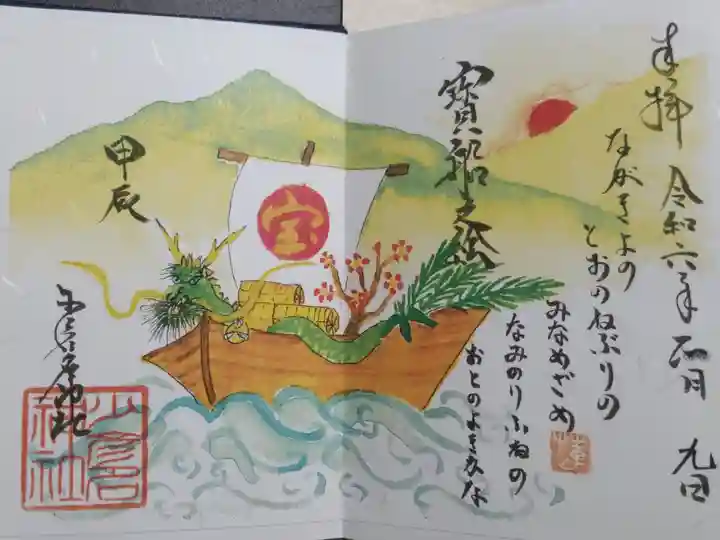 奉拝 令和六年 四月 九日
ながきよの
とおのねぶりの
みなめざめ
なみのりふねの
おとのよきかな
寶船之絵
宝
甲辰
神社